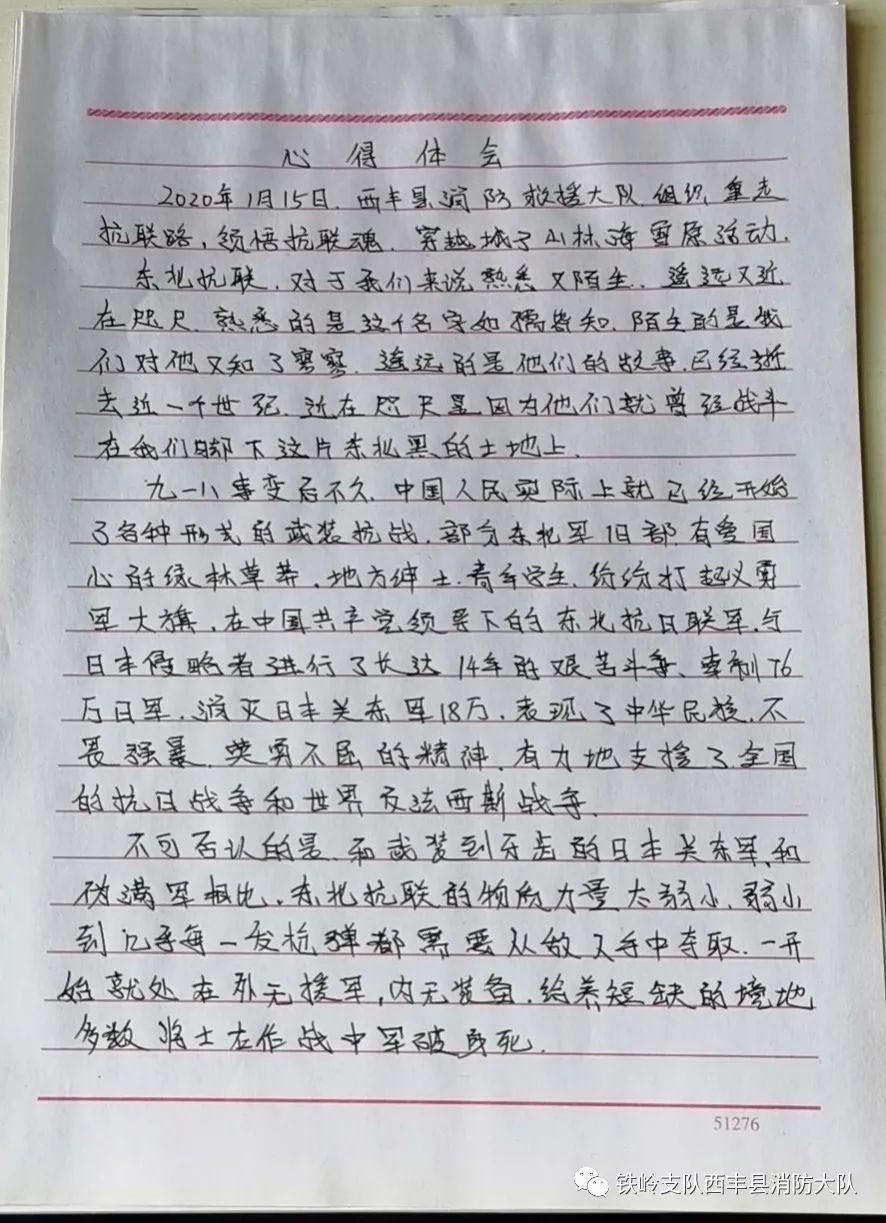 心得体会
2020年1月15日.西丰县消防救援大队.组织.重走
抗联路,领悟抗联魂.穿越城子山林海雪原活动.
东北抗联.对于我们来说熟悉又陌生.遥远又近
在咫尺.熟悉的是这个名字如孺皆知.陌生的是我
们对他又知了寥寥.遥远的是他们的故事.已经逝
去近一个世纪.近在咫尺是因为他们就曾经战斗
在我们脚下这片东北黑的土地上.
九一八事变后不久.中国人民实际上就已经开始
了各种形式的武装抗战.部分东北军旧部.有爱国
心的绿林草莽.地方绅士.青年学生.纷纷打起义勇
军大旗.在中国共产党领导下的东北抗日联军.与
日本侵略者进行了长达14年的艰苦斗争、牵制76
万日军.消灭日本关东军18万.表现了中华民族.不
畏强暴.英勇不屈的精神.有力地支援了全国
的抗日战争和世界反法西斯战争.
不可否认的是.和武装到牙齿的日本关东军.和
伪满军相比.东北抗联的物质力量太弱小.弱小
到几乎每一发枪弹都需要从敌人手中夺取.一开
始就处在外无援军,内无装备.给养短缺的境地
多数将士在作战中军破身死.
51276
铁岭支队西丰县消防大队